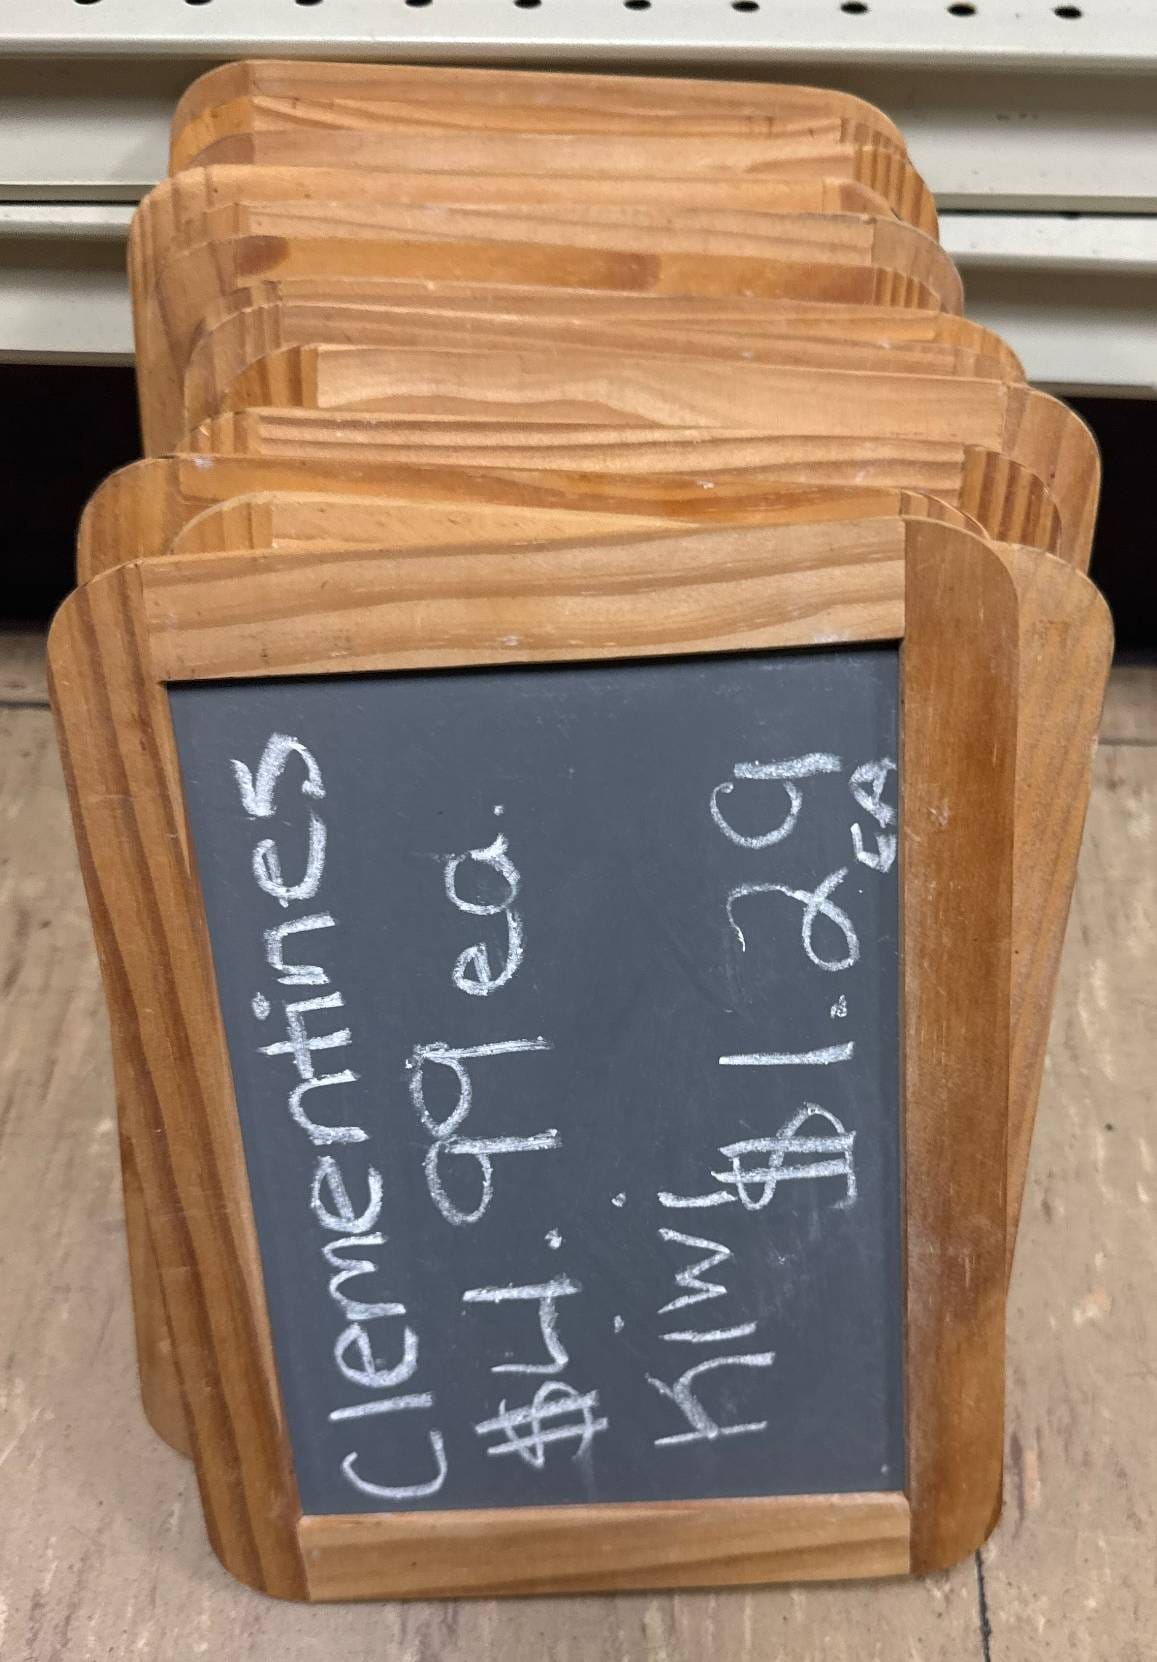 Clementines
$4.99 ea.
Kiwi
$1.29 EA